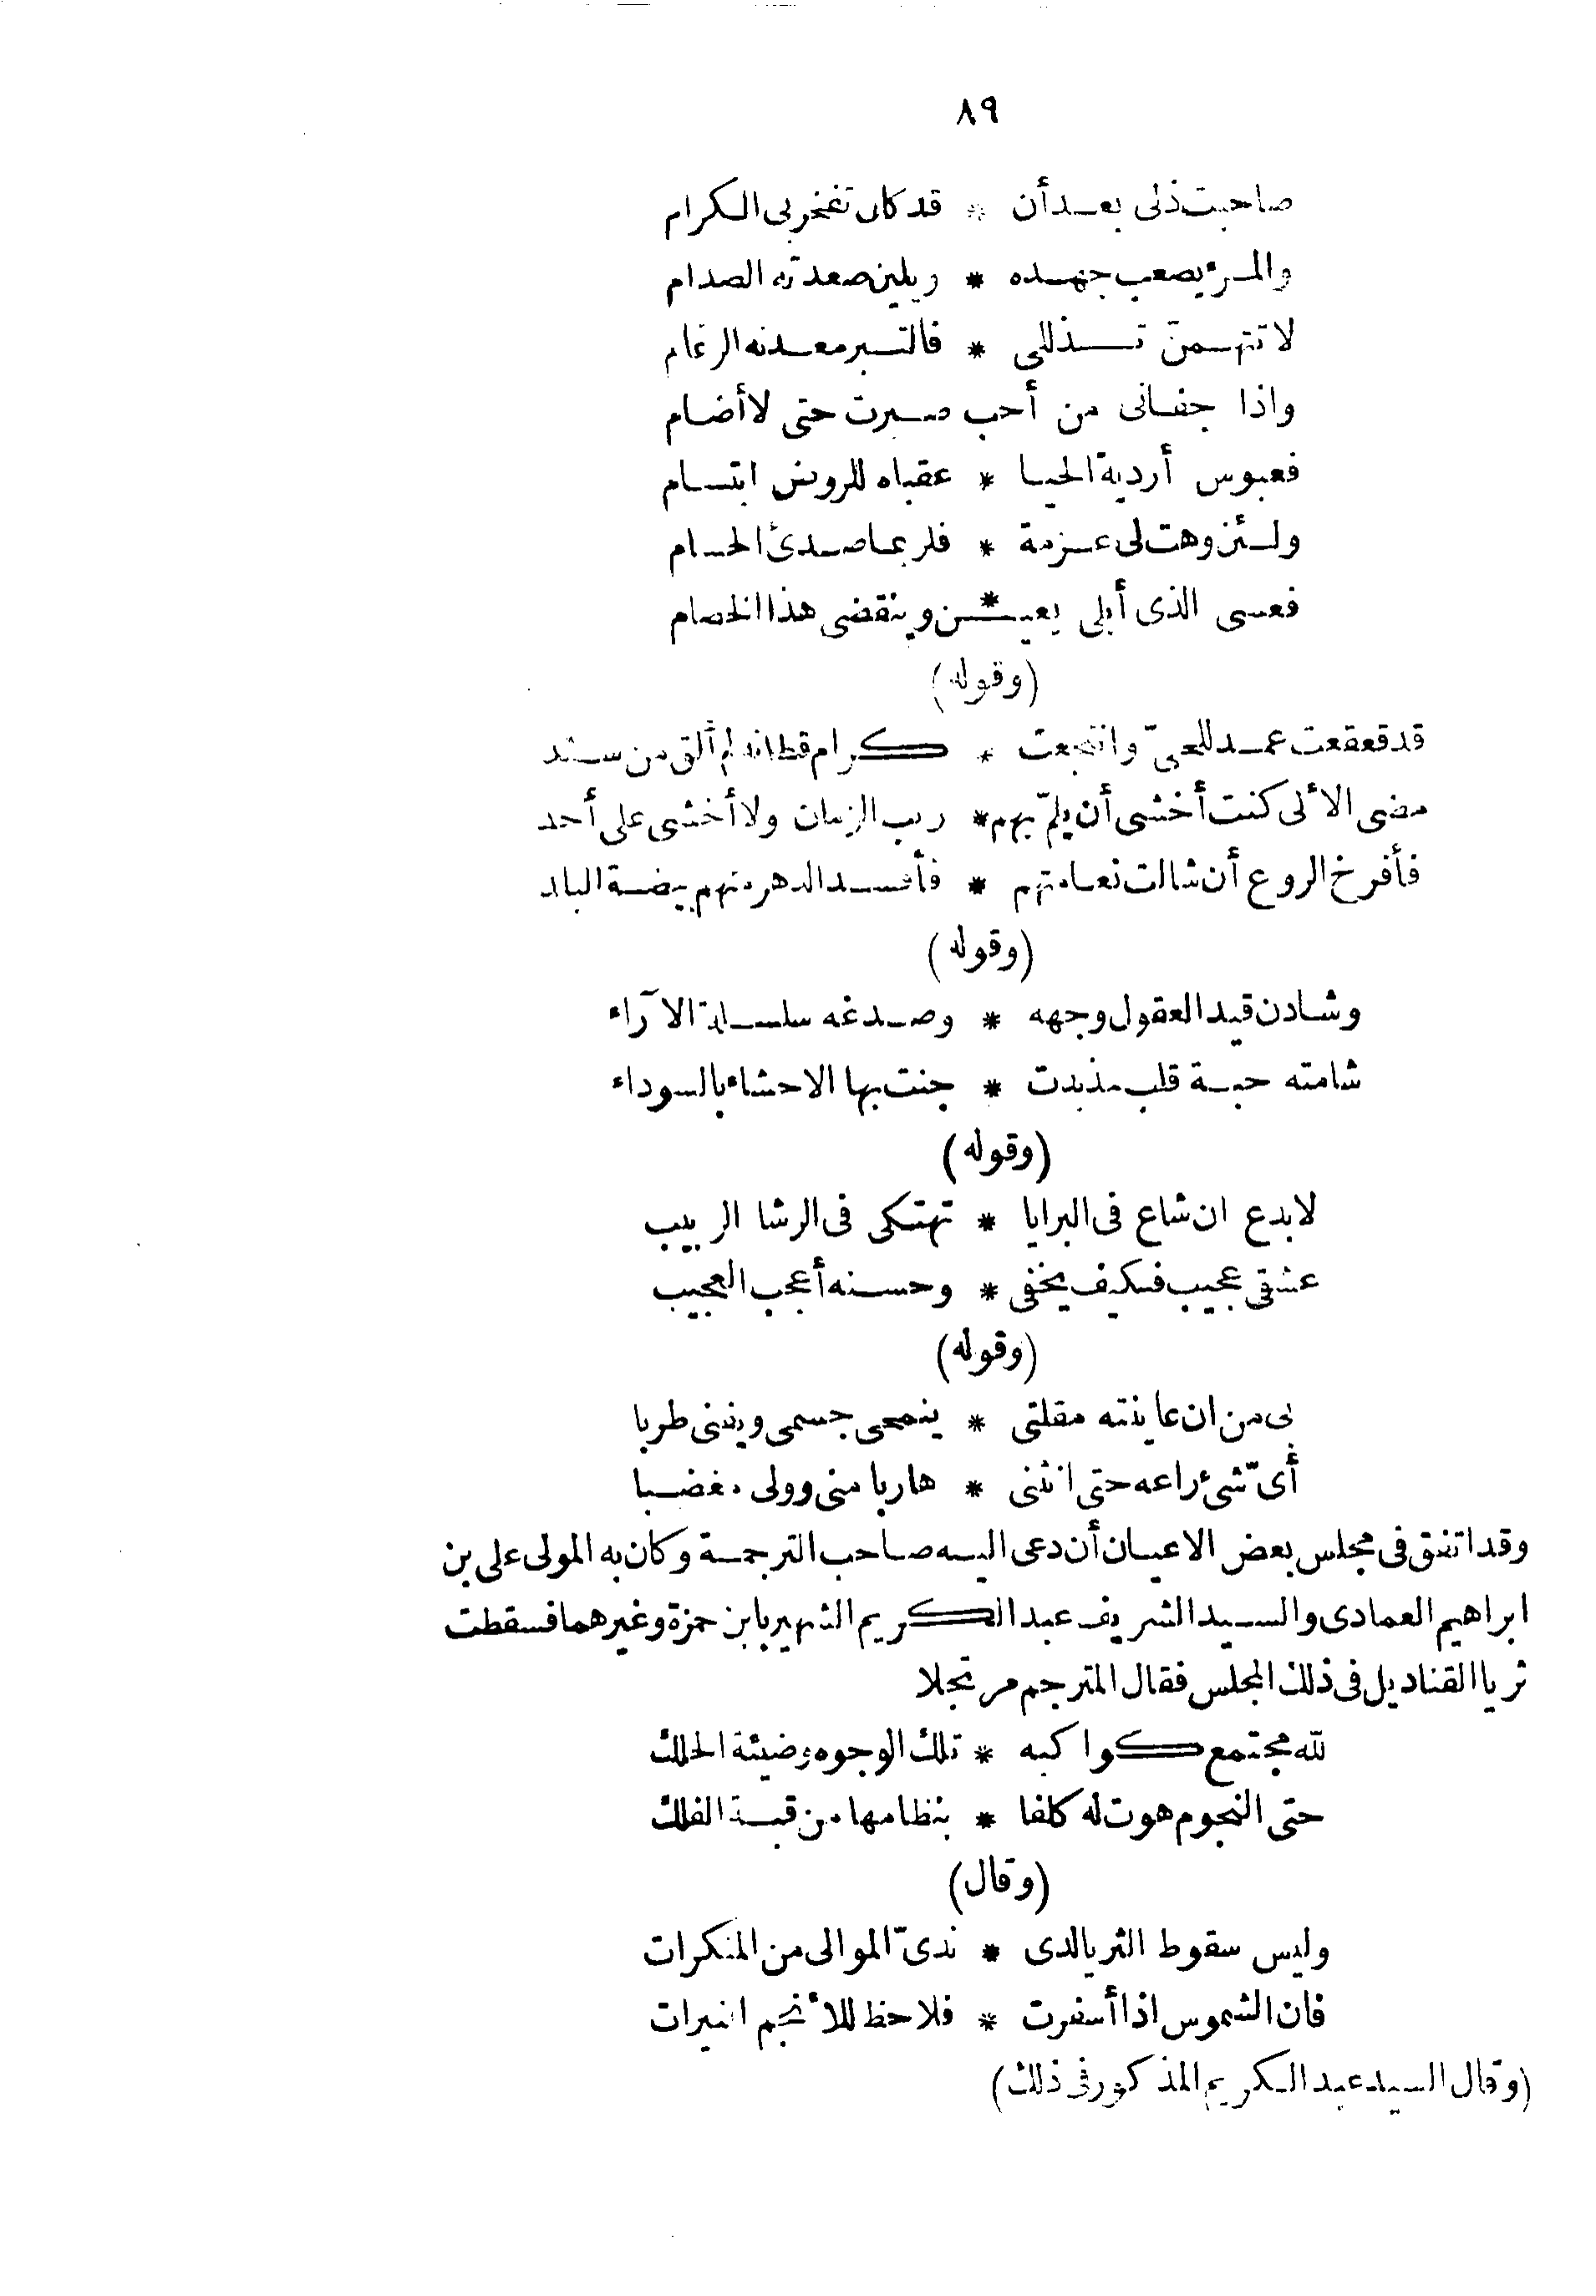 ٨٩
صاحبت ذلى بعد أن * قد كان تفخر بى الكرام
والمرء يصعب جهده * ويلين صعدته الصدام
لا تتهمنّ تذللى * فالتبر معدنه الرغام
واذا جفانى من أحب صبرت حتى لا أضام
فعبوس أردية الحيا * عقباه للروض ابتسام
ولئن وهت لى عزمة * فلربما صدئ الحسام
فعسى الذى أبلى يعين * وينقضى هذا الخصام
(وقوله)
قد قعقعت عمد للحىّ وانتجعت * كرام قطانه لم ألق من سند
مضى الأ لى كنت أخشى أن يلمّ بهم * ريب الزمان ولا أخشى على أحد
فأفرخ الروع أن شالت نعامتهم * فأفسد الدهر منهم بيضة البلد
(وقوله)
وشادن قيد العقول وجهه * وصدغه سلسلة الآراء
شامته حبة قلب مذبدت * جنت بها الاحشاء بالسوداء
(وقوله)
لا بدع ان شاع فى البرايا * تهتكى فى الرشا الربيب
عشقى عجيب فكيف يخفى * وحسنه أعجب العجيب
(وقوله)
بى من ان عاينته مقلتى * ينمحى جسمى ويفنى طربا
أىّ شئ راعه حتى انثنى * هاربا منى وولى مغضبا
وقد اتفق فى مجلس بعض الاعيان أن دعى اليه صاحب الترجمة وكان به المولى على بن
ابراهيم العمادى والسيد الشريف عبد الكريم الشهير بابن حمزة وغيرهما فسقطت
ثريا القناديل فى ذلك المجلس فقال المترجم مرتجلا
لله مجتمع كواكبه * تلك الوجوه وضيئة الحلك
حتى النجوم هوت له كلفا * بنظامها من قبة الفلك
(وقال)
وليس سقوط الثريا لدى * ندىّ الموالى من المنكرات
فان الشموس اذا أسفرت * فلا حظ للأ نجم النيرات
(وقال السيد عبد الكريم المذكور فى ذلك)